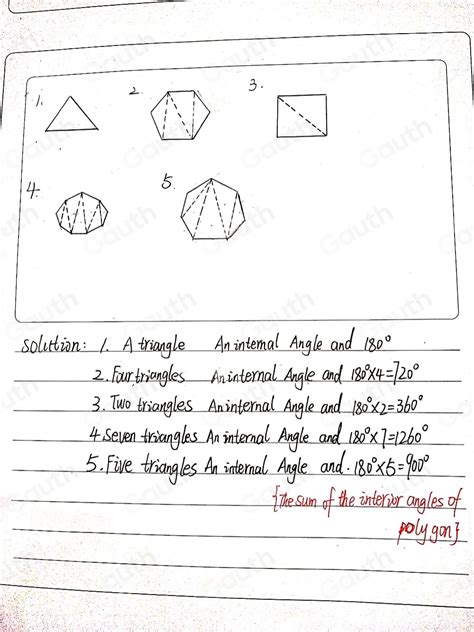 1.
2.
3.
4.
5.
solution: 1. A triangle An internal Angle and 180°
2. Four triangles An internal Angle and 180°×4=720°
3. Two triangles An internal Angle and 180°×2=360°
4. Seven triangles An internal Angle and 180°×7=1260°
5. Five triangles An internal Angle and. 180°×5=900°
{The sum of the interior angles of
polygon}
Gauth